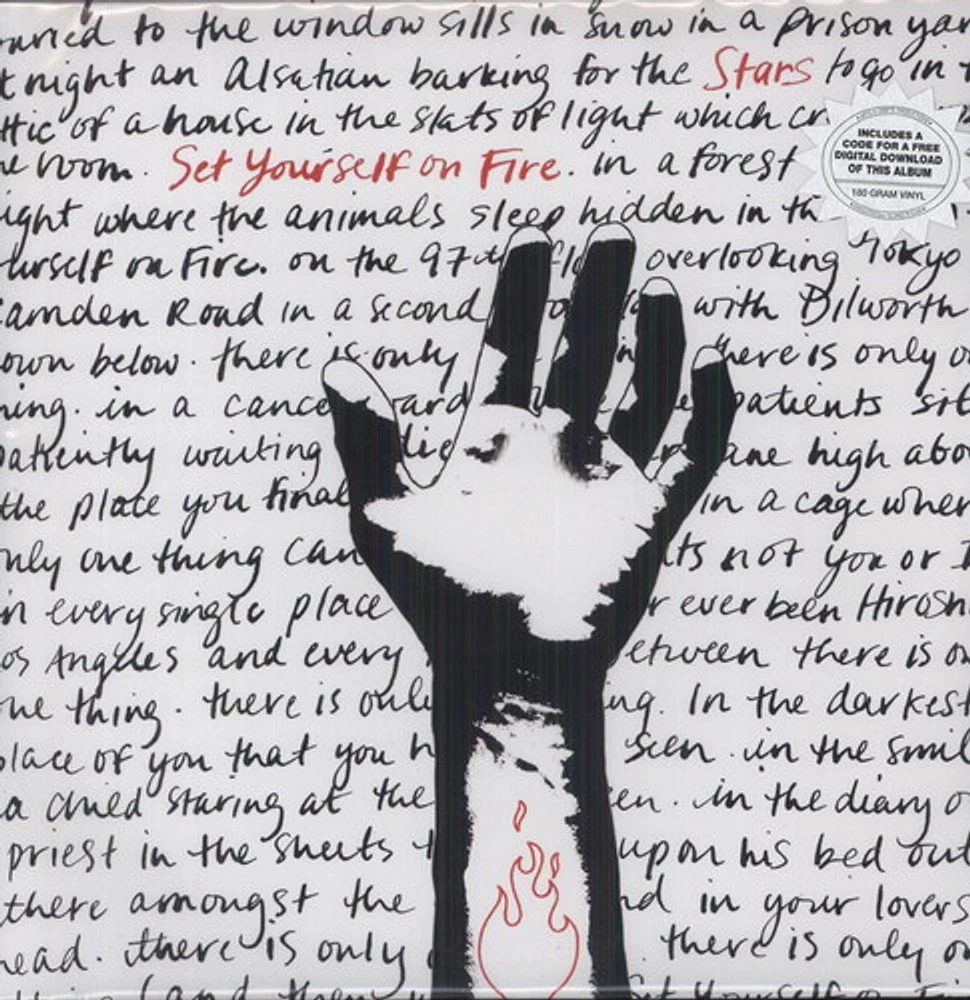 to the window sills in snow in a prison yar
t night an Alsatian barking for the Stars to go in t
ttic of a house in the slats of light which
room. Set Yourself on Fire. in a forest
ight where the animals sleep hidden in th
urself on Fire. on the 97th overlooking Tokyo
amden Road in a second with Dilworth
own below. there is only there is only o
ning. in a cance ard patients sit
patiently waiting die ane high abo
the place you final in a cage wher
nly one thing can its not you or I
in every single place r ever been Hirosh
os Angeles and every etween there is on
ne thing. there is only ng. In the darkest
place of you that you h seen. in the smil
a child staring at the en. in the diary o
priest in the sheets t upon his bed out
there amongst the nd in your lovers
head. there is only there is only on
Set Yourself on Fi
INCLUDES A
CODE FOR A FREE
DIGITAL DOWNLOAD
OF THIS ALBUM
180 GRAM VINYL